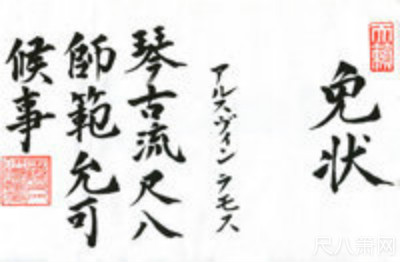 免状
アルスヴィン ラモス
琴古流尺八
師範允可
候事
尺八萧网